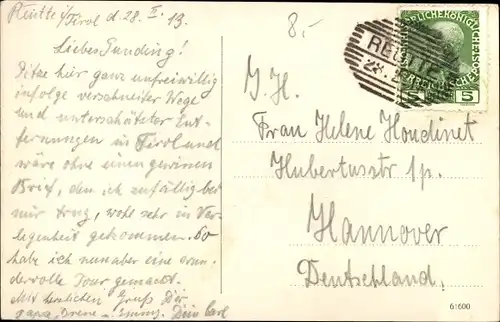 Reutte i/Tirol d. 28. II. 13.
8.-
Liebes
Sitze hier ganz unfreiwillig
infolge verschneiter Wege
und unterschätzter Ent-
fernungen in Tirol und
wäre ohne einen gewissen
Brief, den ich zufällig bei
mir trug, wohl sehr in Ver-
legenheit gekommen. So
habe ich nun aber eine wun-
dervolle Tour gemacht.
Mit herzlichen Gruß Dir
Papa, Dein Carl
REUTTE
5
I. H.
Frau Helene Houdinet
Hubertusstr 1p.
Hannover
Deutschland,
61600